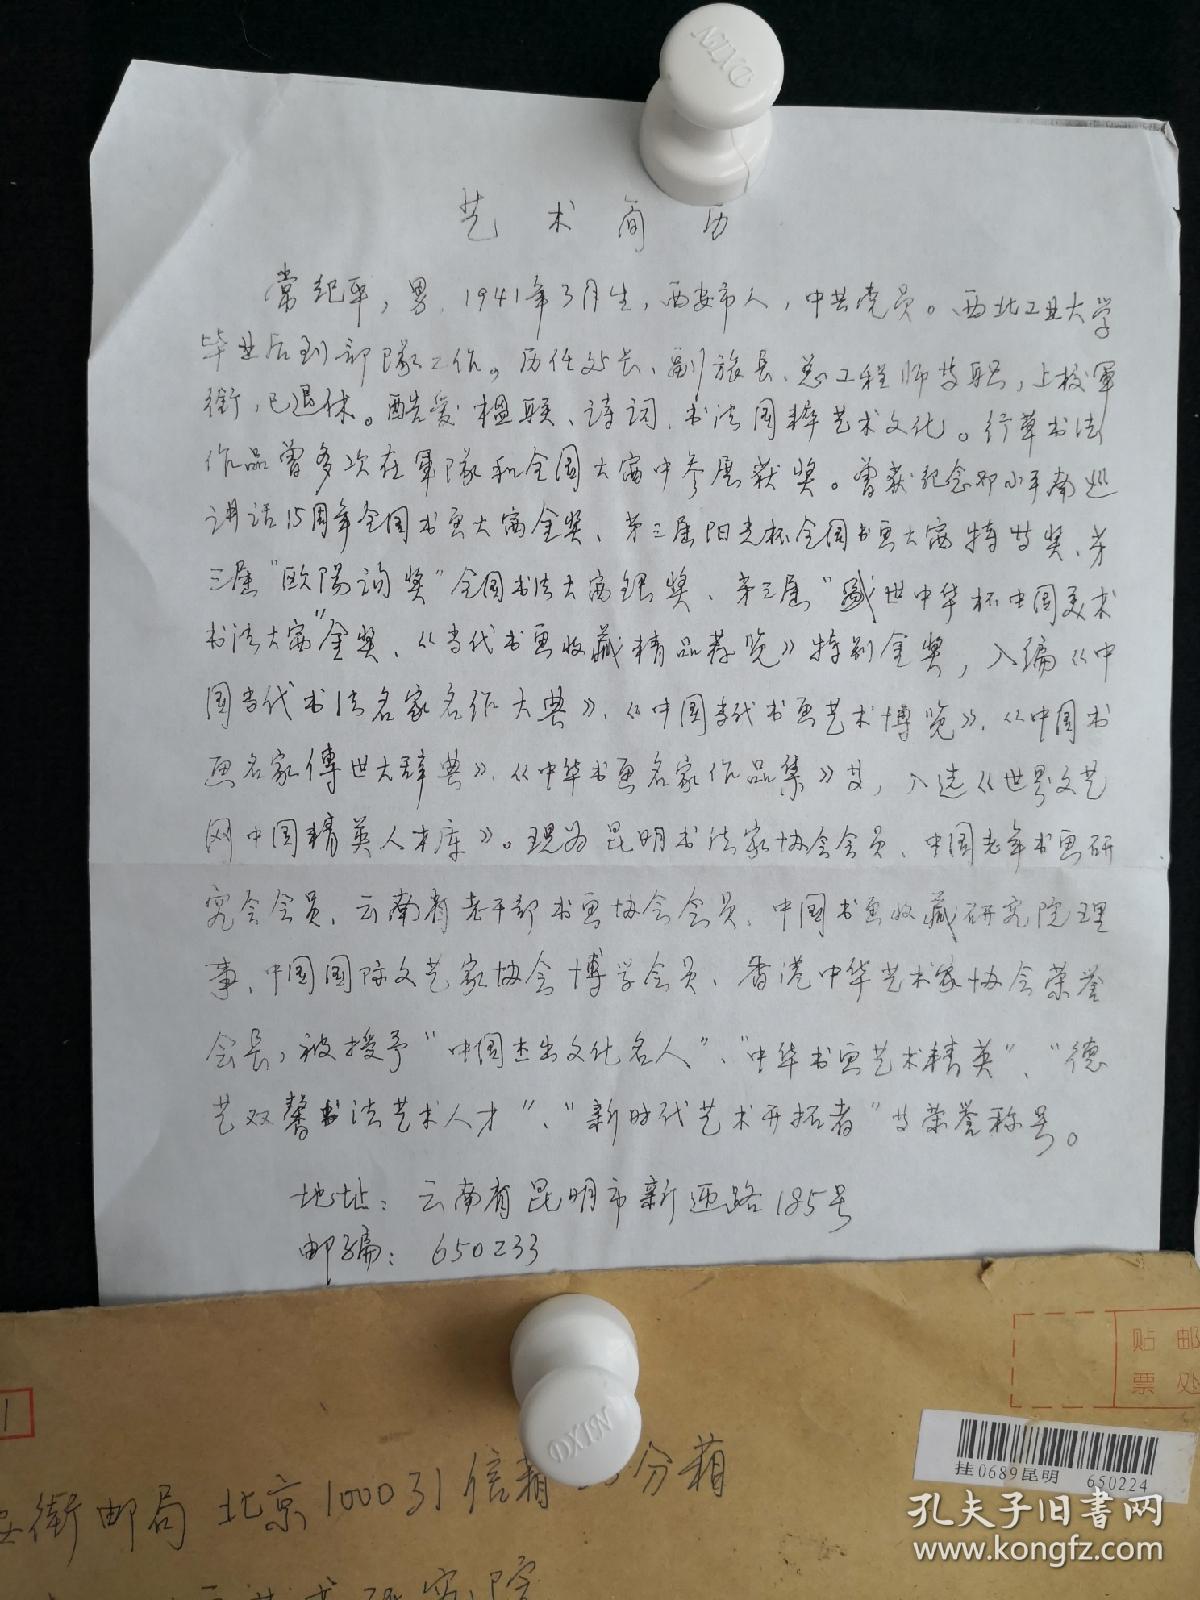 艺术简历
常纪平，男，1941年3月生，西安市人，中共党员。西北工业大学
毕业后到部隊工作。历任处长、副旅长、总工程师等职，上校軍
衔，已退休。酷爱楹联、诗词、书法国粹艺术文化。行草书法
作品曾多次在軍隊和全国大赛中参展获奖。曾获纪念邓小平南巡
讲话15周年全国书画大赛金奖、第三届阳光杯全国书画大赛特等奖、第
三届“欧陽询奖”全国书法大赛银奖、第三届“盛世中华杯中国美术
书法大赛”金奖、《当代书画收藏精品荐览》特别金奖，入编《中
国当代书法名家名作大典》、《中国当代书画艺术博览》、《中国书
画名家傳世大辞典》、《中华书画名家作品集》等，入选《世界文艺
网中国精英人才库》。现为昆明书法家协会会员、中国老年书画研
究会会员、云南省老干部书画协会会员、中国书画收藏研究院理
事、中国国际文艺家协会博学会员、香港中华艺术家协会荣誉
会长，被授予“中国杰出文化名人”、“中华书画艺术精英”、“德
艺双馨书法艺术人才”、“新时代艺术开拓者”等荣誉称号。
地址：云南省昆明市新迎路185号
邮编：650233
DXIN
DXIN
贴邮
票处
1
挂0689昆明 650224
街邮局北京100031信箱 分箱
艺术研究院
孔夫子旧书网
www.kongfz.com